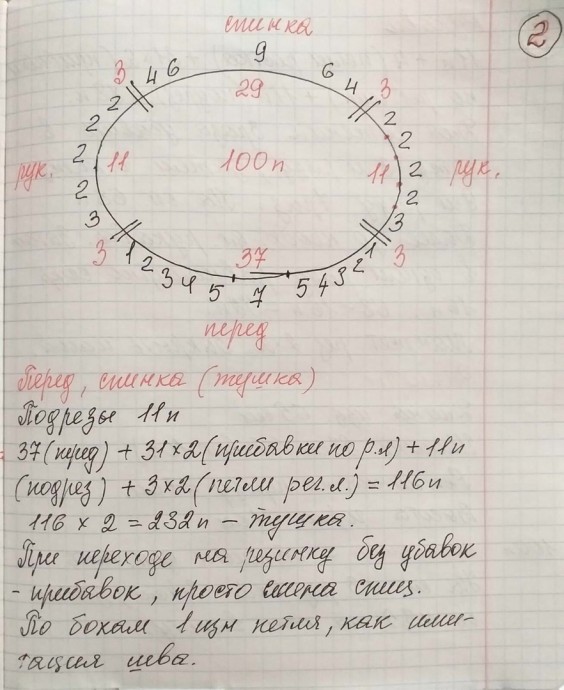 спинка
2
9
6 6
3 4 4 3
29
2 2
2 2
рук. 2 11 100п 11 2 рук.
2 2
3 3
3 1 37 1 3
2 3 4 5 7 5 4 3 2
перед
Перед, спинка (тушка)
Подрезы 11п
37(перед) + 31×2(прибавки по р.л) + 11п
(подрез) + 3×2(петли рег.л.) = 116п
116 × 2 = 232п – тушка.
При переходе на резинку без убавок
- прибавок, просто смена спиц.
По бокам 1 изн петля, как ими-
тация шва.